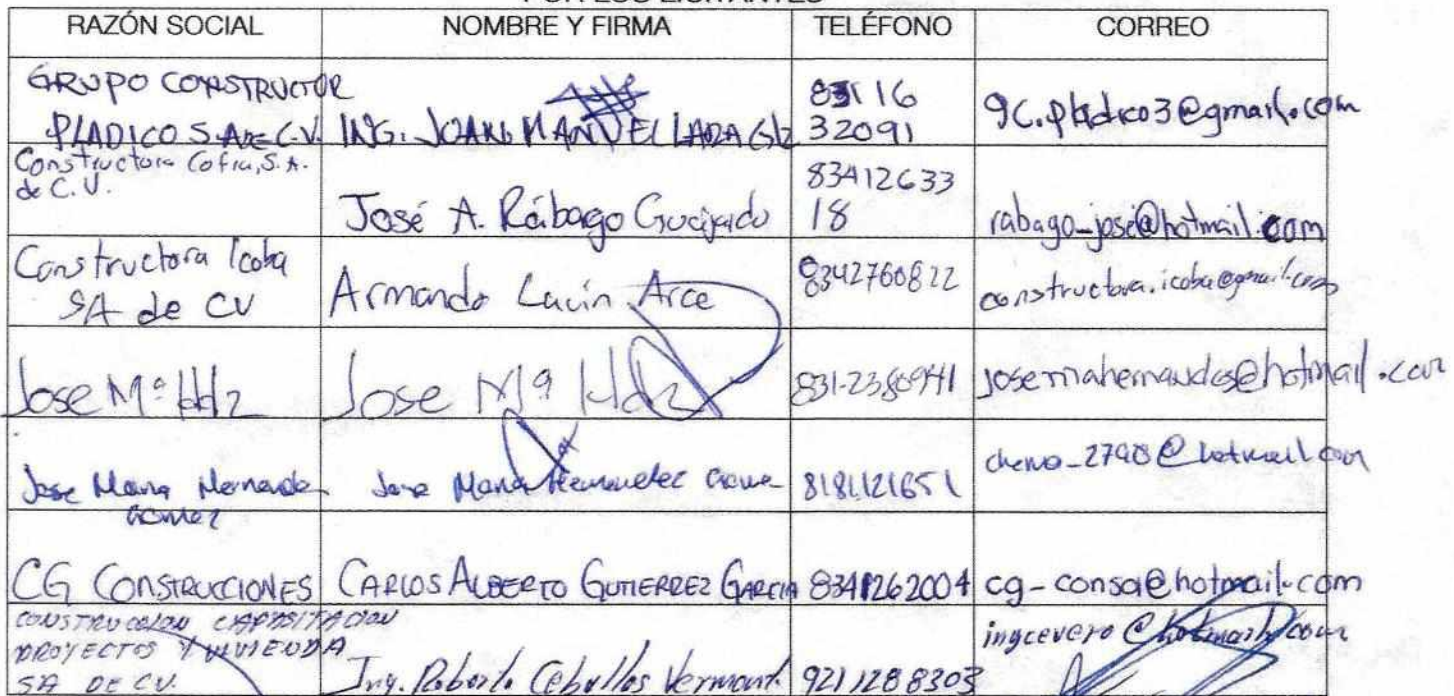 POR LOS LICITANTES
RAZÓN SOCIAL NOMBRE Y FIRMA TELÉFONO CORREO
GRUPO CONSTRUCTOR
PLADICO S.A DE C.V. ING. JUAN MANUEL LARA Glz 83116 32091 gc.pladico3@gmail.com
Constructora Cofiu, S.A.
de C.V.
José A. Rábago Guajardo 83412633 18 rabago_jose@hotmail.com
Constructora Icoba
SA de CV Armando Lavín Arce 8342760822 constructora.icoba@gmail.com
Jose Mª Hdz Jose Mª Hdz 831-2380941 josemahernandes@hotmail.com
Jose Maria Hernandez
Gomez Jose Maria Hernandez Gomez 8181121651 chema_2790@hotmail.com
CG CONSTRUCCIONES CARLOS ALBERTO GUTIERREZ GARCIA 8341262004 cg-consa@hotmail.com
CONSTRUCCION CAPACITACION
PROYECTOS Y VIVIENDA
SA DE CV. Ing. Roberto Ceballos Vermont. 921 128 8303 ingcevero@hotmail.com